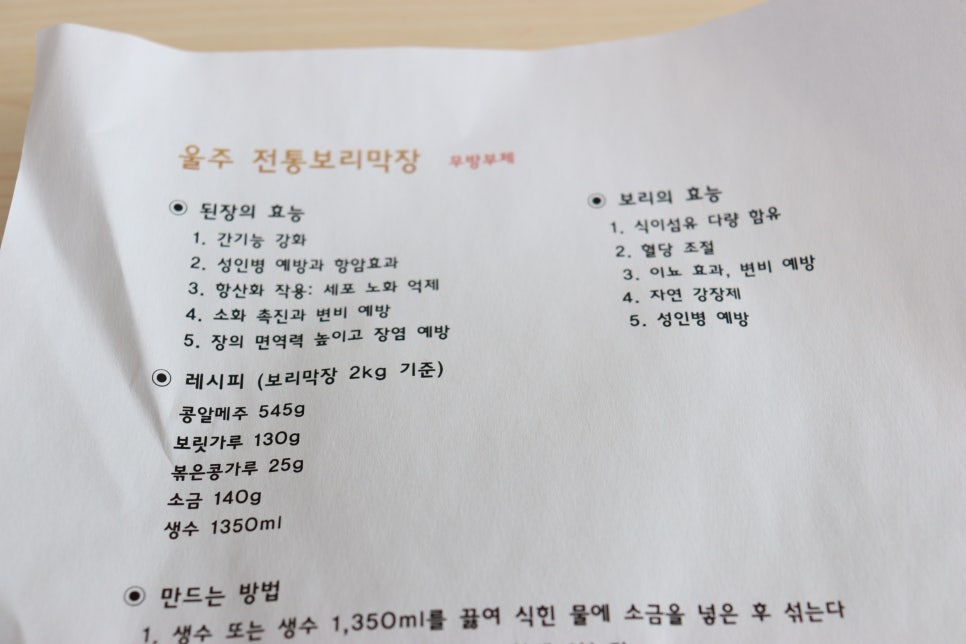 울주 전통보리막장 무방부제
◉ 된장의 효능
1. 간기능 강화
2. 성인병 예방과 항암효과
3. 항산화 작용: 세포 노화 억제
4. 소화 촉진과 변비 예방
5. 장의 면역력 높이고 장염 예방
◉ 보리의 효능
1. 식이섬유 다량 함유
2. 혈당 조절
3. 이뇨 효과, 변비 예방
4. 자연 강장제
5. 성인병 예방
◉ 레시피 (보리막장 2kg 기준)
콩알메주 545g
보릿가루 130g
볶은콩가루 25g
소금 140g
생수 1350ml
◉ 만드는 방법
1. 생수 또는 생수 1,350ml를 끓여 식힌 물에 소금을 넣은 후 섞는다